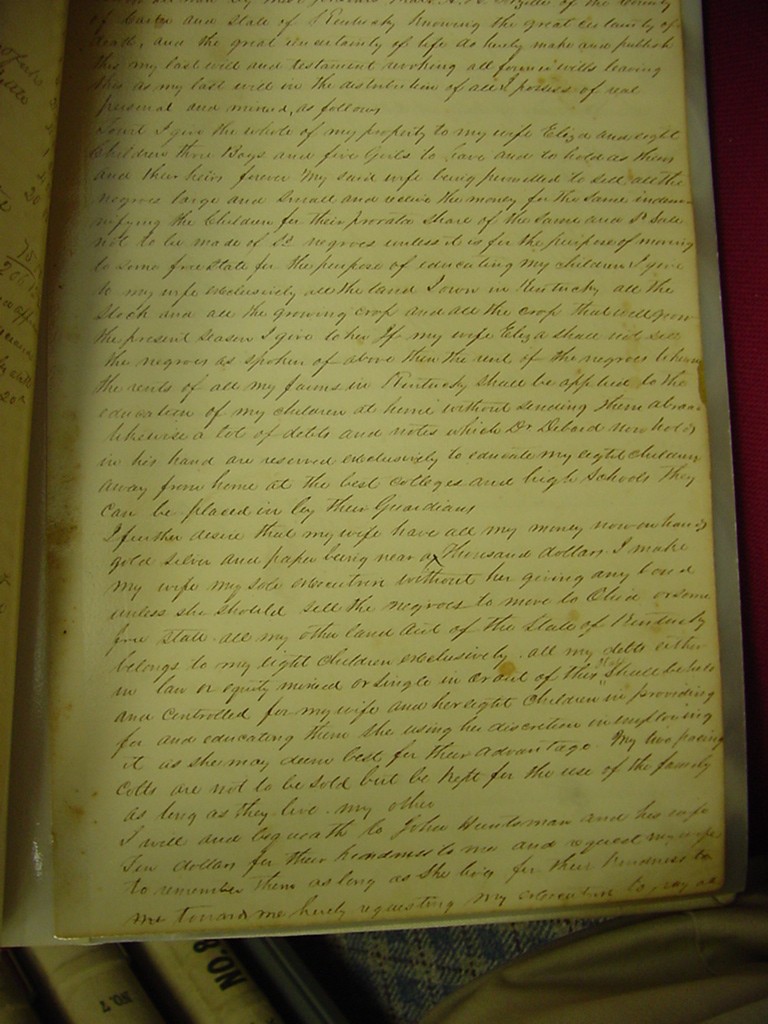 of the County
of Carter and state of Kentucky Knowing the great certainty of
death, and the great uncertainty of life do herby make and publish
this my last will and testament revoking all former wills leaving
this as my last will in the distribution of all I possess of real
personal and mixed, as follows
Towit I give the whole of my property to my wife Eliza and eight
Children three Boys and five Girls to have and to hold as theirs
and their heirs forever My said wife being permitted to sell all the
negroes large and small and receive the money for the same indem
nifying the Children for their prorata share of the same and Sd Sale
not to be made of Sd negroes unless it is for the purpose of moving
to some free state for the purpose of educating my children I give
to my wife exclusively all the land I own in Kentucky all the
stock and all the growing crop and all the crop that will grow
the present season I give to her If my wife Eliza shall not sell
the negroes as spoken of above then the rent of the negroes
the rents of all my farms in Kentucky shall be applied to the
education of my children at home without sending them abroad
likewise a lot of debts and notes which Dr Debord now holds
in his hand are reserved exclusively to educate my eight children
away from home at the best colleges and high Schools they
can be placed in by their Guardians
I further desire that my wife have all my money now on hand
gold silver and paper being near a thousand dollars I make
my wife my sole executrix without her giving any bond
unless she should sell the negroes to move to Ohio or some
free state. all my other land out of the State of Kentucky
belongs to my eight children exclusively. all my debts either
in law or equity mixed or single in or out of this State shall be held
and controlled for my wife and her eight children in providing
for and educating them she using her discretion in employing
it as she may deem best for their advantage. My two pacing
colts are not to be sold but be kept for the use of the family
as long as they live. my other
I will and bequeath to John Huntsman and his wife
Ten dollars for their kindness to me and request my wife
to remember them as long as she lives for their kindness to
me toward me herby requesting my executrix to pay as
NO. 7
NO. 8